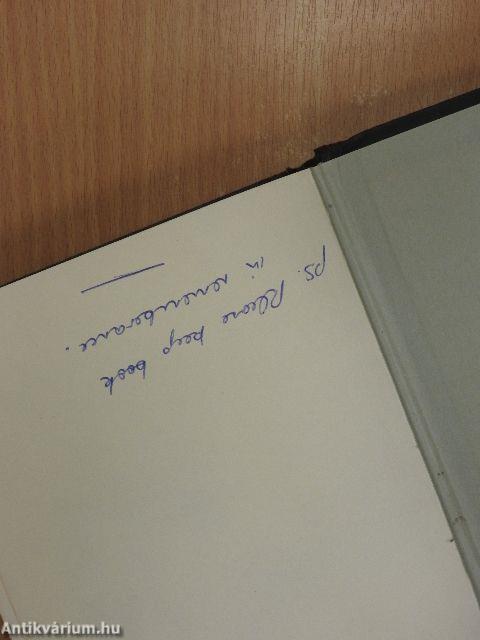 PS. Please keep book
in rememberance.
Antikvárium.hu